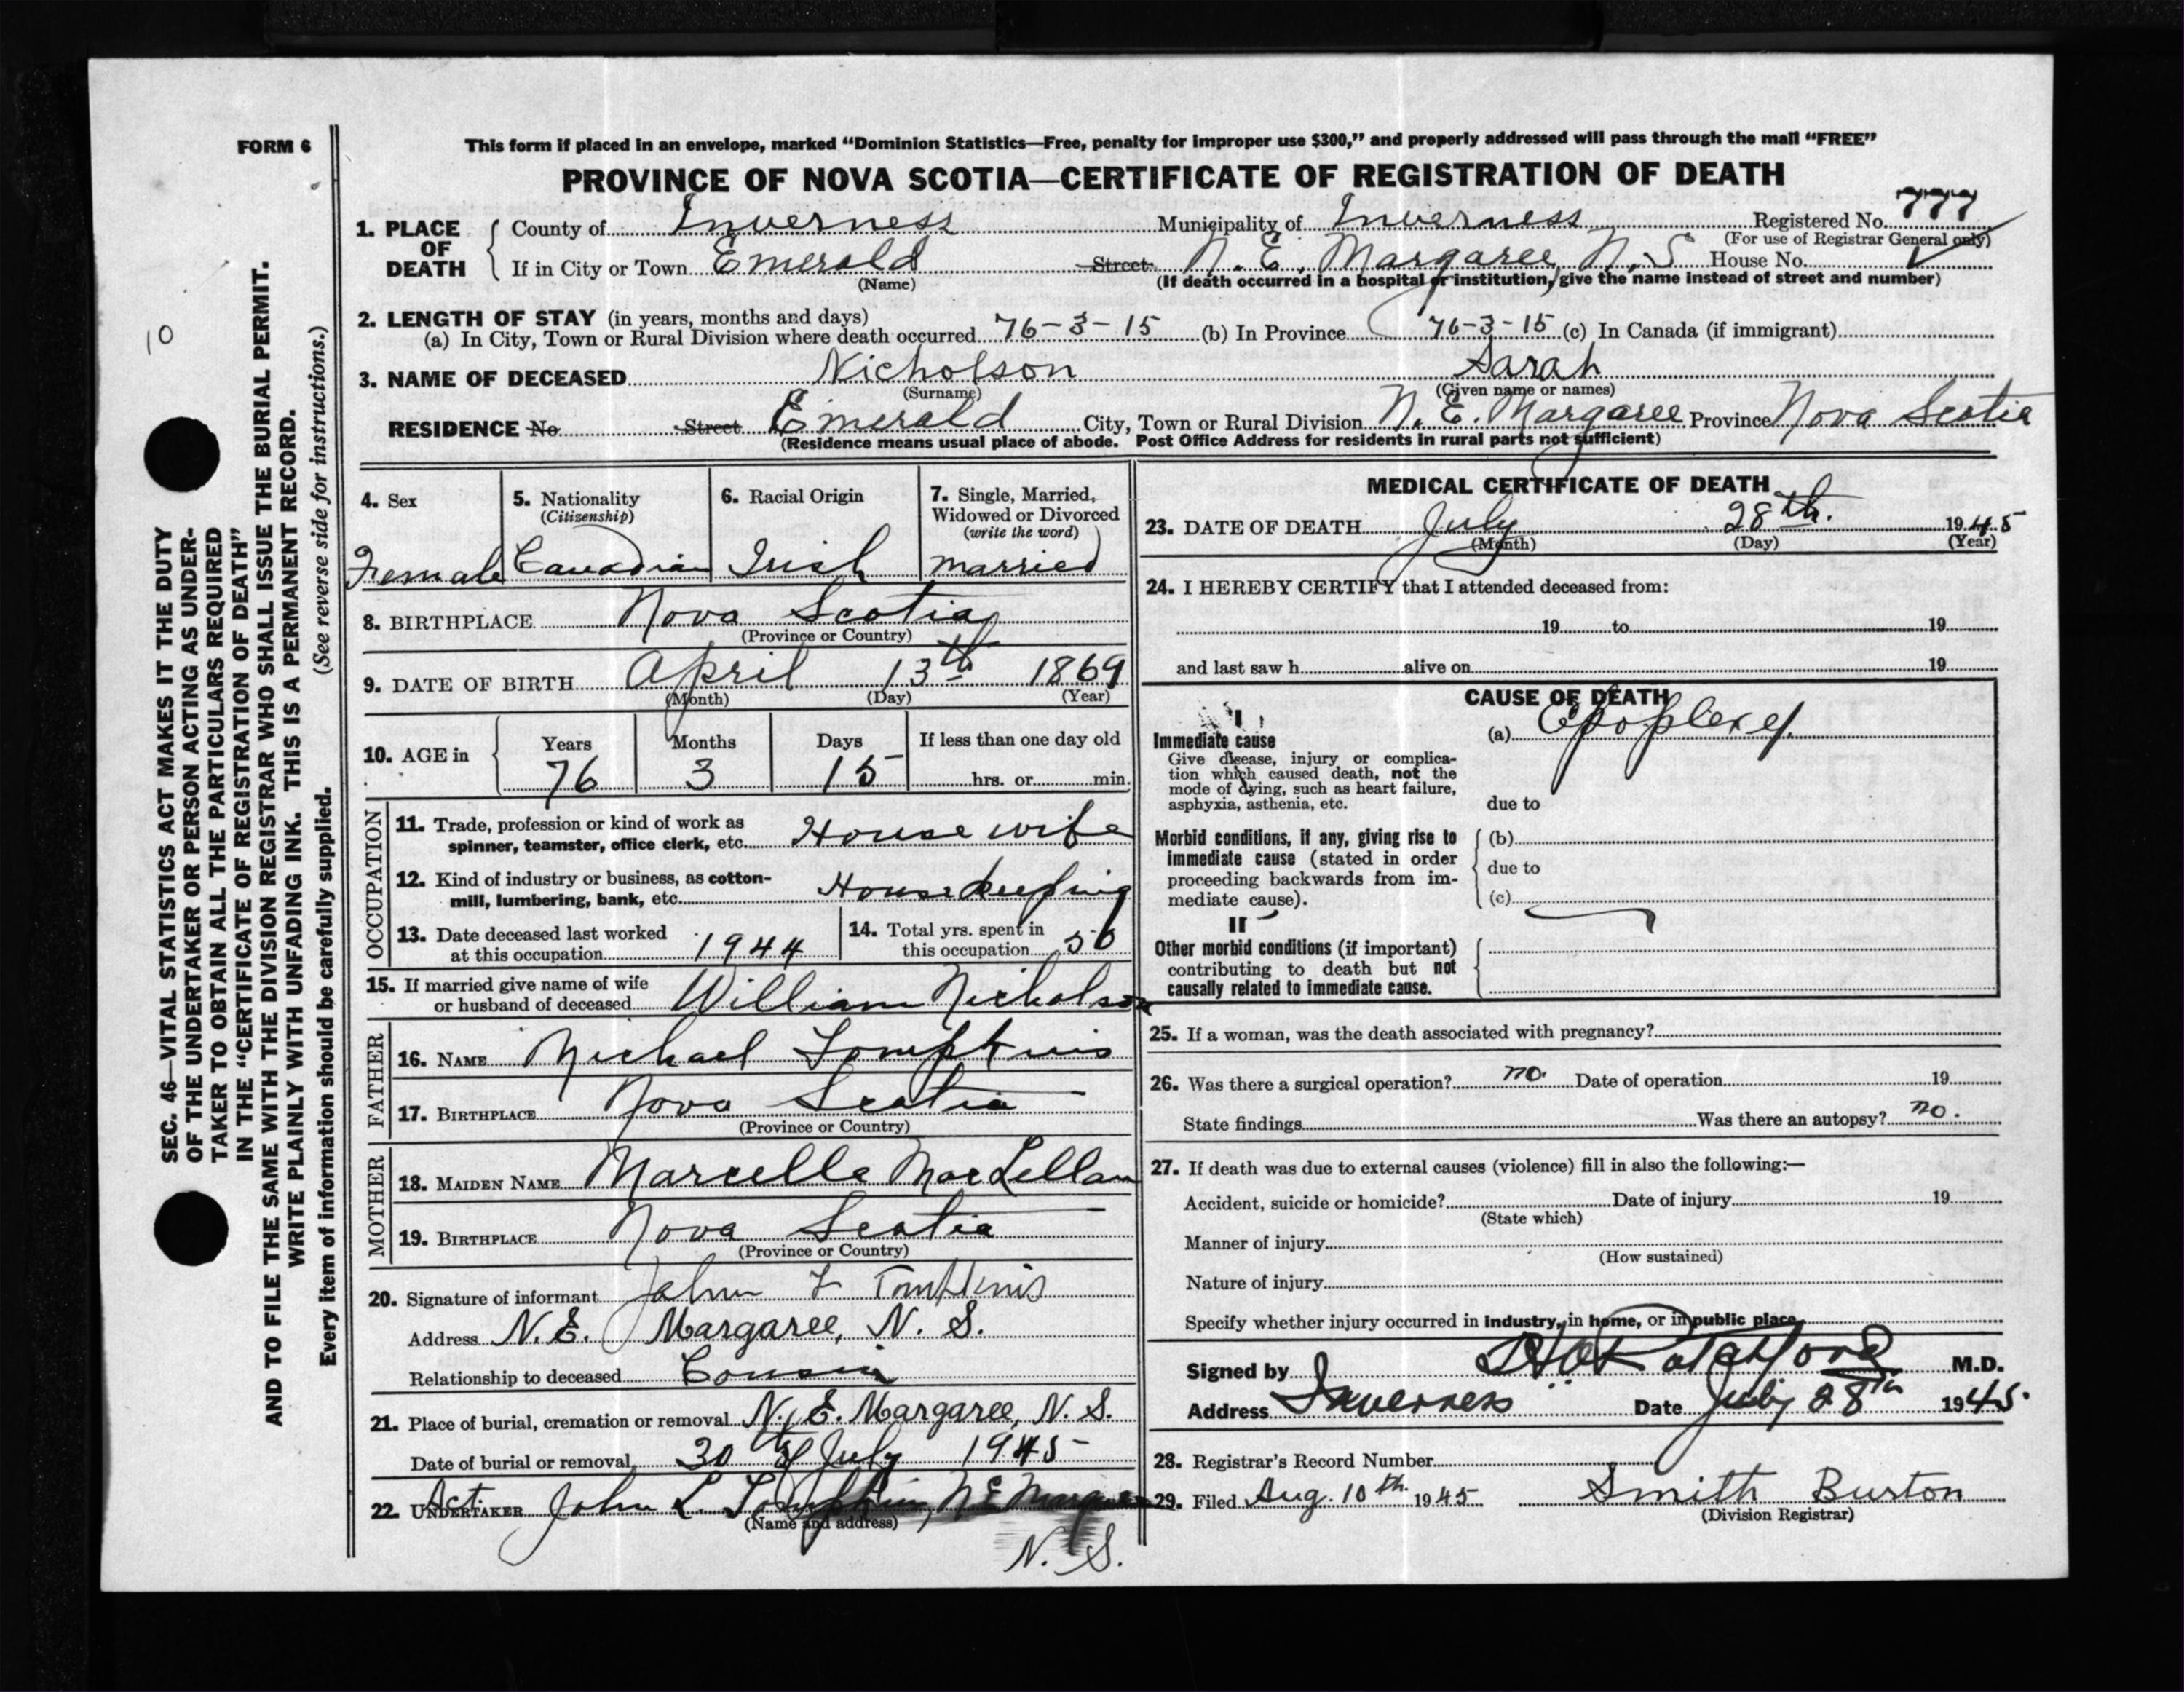 FORM 6
This form if placed in an envelope, marked “Dominion Statistics—Free, penalty for improper use $300,” and properly addressed will pass through the mail “FREE”
PROVINCE OF NOVA SCOTIA—CERTIFICATE OF REGISTRATION OF DEATH
1. PLACE OF DEATH
County of Inverness Municipality of Inverness Registered No. 777
(For use of Registrar General only)
If in City or Town Emerald Street N. E. Margaree, N. S House No.
(Name) (If death occurred in a hospital or institution, give the name instead of street and number)
2. LENGTH OF STAY (in years, months and days)
(a) In City, Town or Rural Division where death occurred 76-3-15 (b) In Province 76-3-15 (c) In Canada (if immigrant)
3. NAME OF DECEASED Nicholson Sarah
(Surname) (Given name or names)
RESIDENCE No Street Emerald City, Town or Rural Division N. E. Margaree Province Nova Scotia
(Residence means usual place of abode. Post Office Address for residents in rural parts not sufficient)
4. Sex
Female
5. Nationality
(Citizenship)
Canadian
6. Racial Origin
Irish
7. Single, Married,
Widowed or Divorced
(write the word)
married
8. BIRTHPLACE Nova Scotia
(Province or Country)
9. DATE OF BIRTH April 13th 1869
(Month) (Day) (Year)
10. AGE in
Years Months Days If less than one day old
76 3 15 hrs. or min.
OCCUPATION
11. Trade, profession or kind of work as
spinner, teamster, office clerk, etc. House wife
12. Kind of industry or business, as cotton-
mill, lumbering, bank, etc. Housekeeping
13. Date deceased last worked
at this occupation 1944
14. Total yrs. spent in
this occupation 50
15. If married give name of wife
or husband of deceased William Nicholson
FATHER
16. NAME Michael Tompkins
17. BIRTHPLACE Nova Scotia
(Province or Country)
MOTHER
18. MAIDEN NAME Marcella MacLellan
19. BIRTHPLACE Nova Scotia
(Province or Country)
20. Signature of informant John F Tompkins
Address N. E. Margaree, N. S.
Relationship to deceased Cousin
21. Place of burial, cremation or removal N. E. Margaree, N. S.
Date of burial or removal 30th of July 1945
22. Act. UNDERTAKER John L. Tompkins, N E Margaree
(Name and address)
N. S.
MEDICAL CERTIFICATE OF DEATH
23. DATE OF DEATH July 28th. 1945
(Month) (Day) (Year)
24. I HEREBY CERTIFY that I attended deceased from:
19 to 19
and last saw h alive on 19
CAUSE OF DEATH
I
Immediate cause
Give disease, injury or complica-
tion which caused death, not the
mode of dying, such as heart failure,
asphyxia, asthenia, etc.
(a) Epoplexy.
due to
Morbid conditions, if any, giving rise to
immediate cause (stated in order
proceeding backwards from im-
mediate cause).
(b)
due to
(c)
II
Other morbid conditions (if important)
contributing to death but not
causally related to immediate cause.
25. If a woman, was the death associated with pregnancy?
26. Was there a surgical operation? no. Date of operation 19
State findings Was there an autopsy? no.
27. If death was due to external causes (violence) fill in also the following:—
Accident, suicide or homicide? Date of injury 19
(State which)
Manner of injury
(How sustained)
Nature of injury
Specify whether injury occurred in industry, in home, or in public place
Signed by M.D.
Address Inverness Date July 28th 1945.
28. Registrar's Record Number
29. Filed Aug. 10th. 1945 Smith Burton
(Division Registrar)
10
SEC. 46—VITAL STATISTICS ACT MAKES IT THE DUTY
OF THE UNDERTAKER OR PERSON ACTING AS UNDER-
TAKER TO OBTAIN ALL THE PARTICULARS REQUIRED
IN THE “CERTIFICATE OF REGISTRATION OF DEATH”
AND TO FILE THE SAME WITH THE DIVISION REGISTRAR WHO SHALL ISSUE THE BURIAL PERMIT.
WRITE PLAINLY WITH UNFADING INK. THIS IS A PERMANENT RECORD.
Every item of information should be carefully supplied. (See reverse side for instructions.)